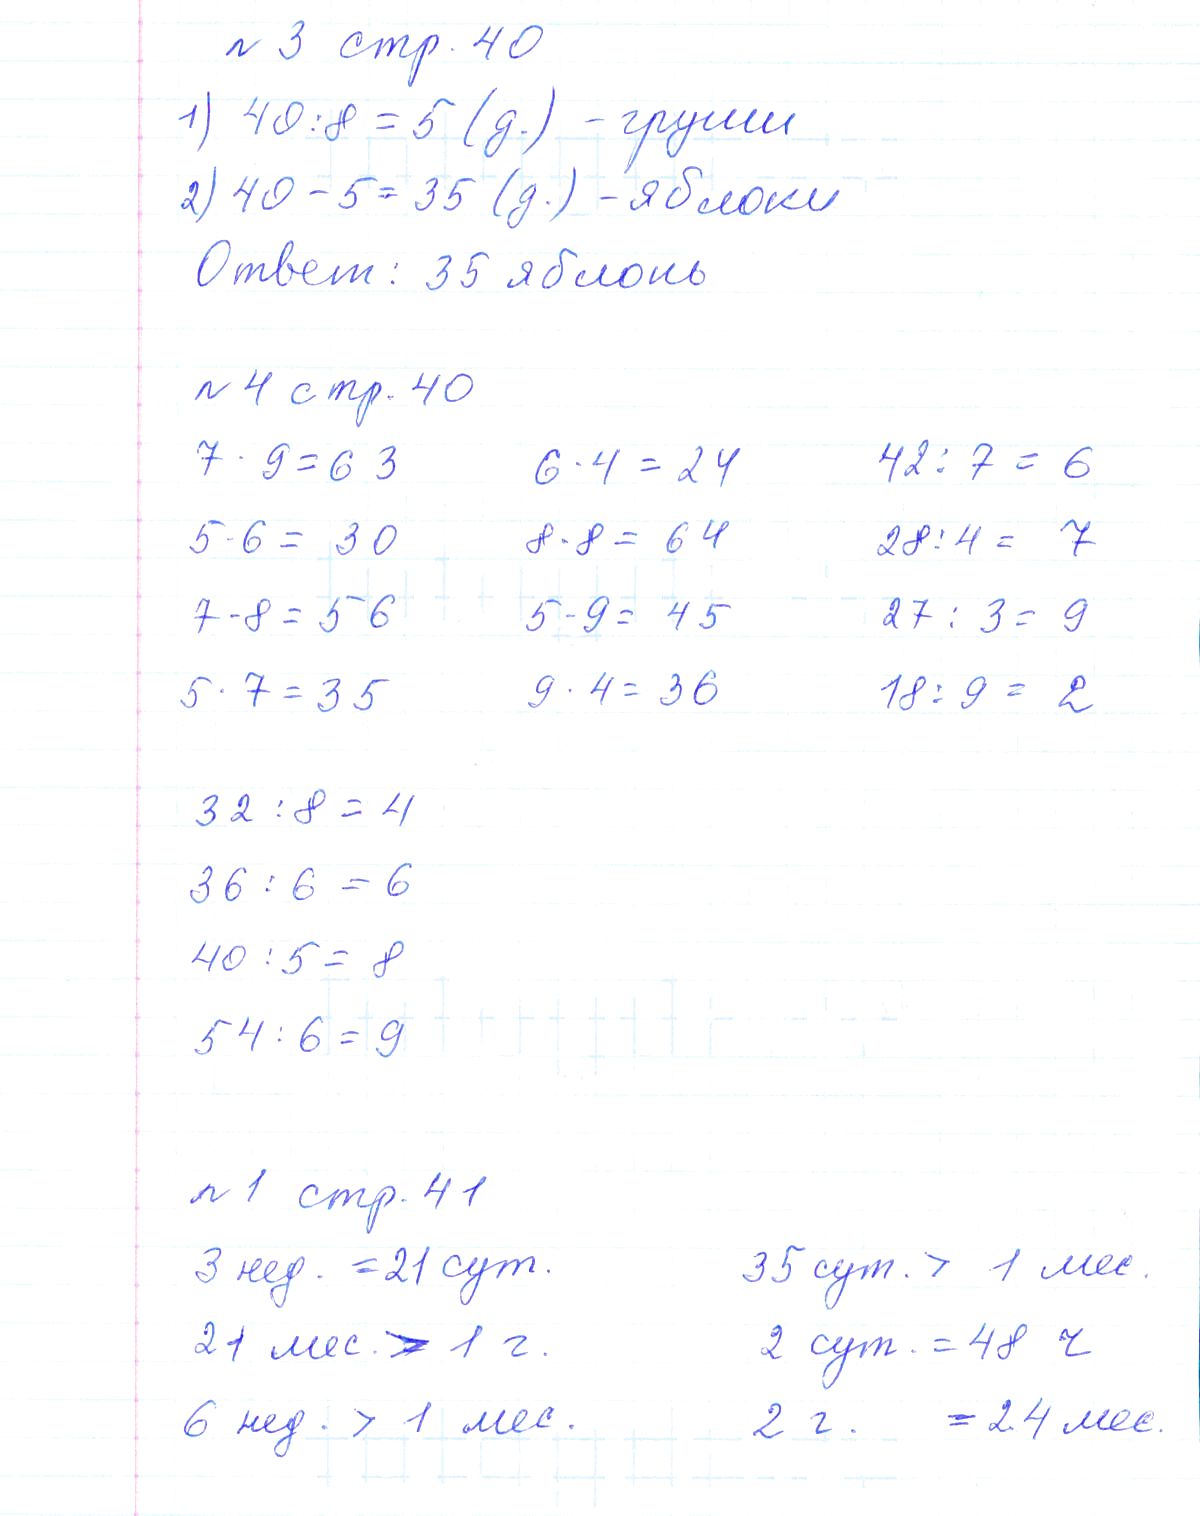 № 3 стр. 40
1) 40:8 = 5 (д.) - груши
2) 40 - 5 = 35 (д.) - яблоки
Ответ: 35 яблонь
№ 4 стр. 40
7 · 9 = 63 6 · 4 = 24 42 : 7 = 6
5 · 6 = 30 8 · 8 = 64 28 : 4 = 7
7 · 8 = 56 5 · 9 = 45 27 : 3 = 9
5 · 7 = 35 9 · 4 = 36 18 : 9 = 2
32 : 8 = 4
36 : 6 = 6
40 : 5 = 8
54 : 6 = 9
№ 1 стр. 41
3 нед. = 21 сут. 35 сут. > 1 мес.
21 мес. > 1 г. 2 сут. = 48 ч
6 нед. > 1 мес. 2 г. = 24 мес.